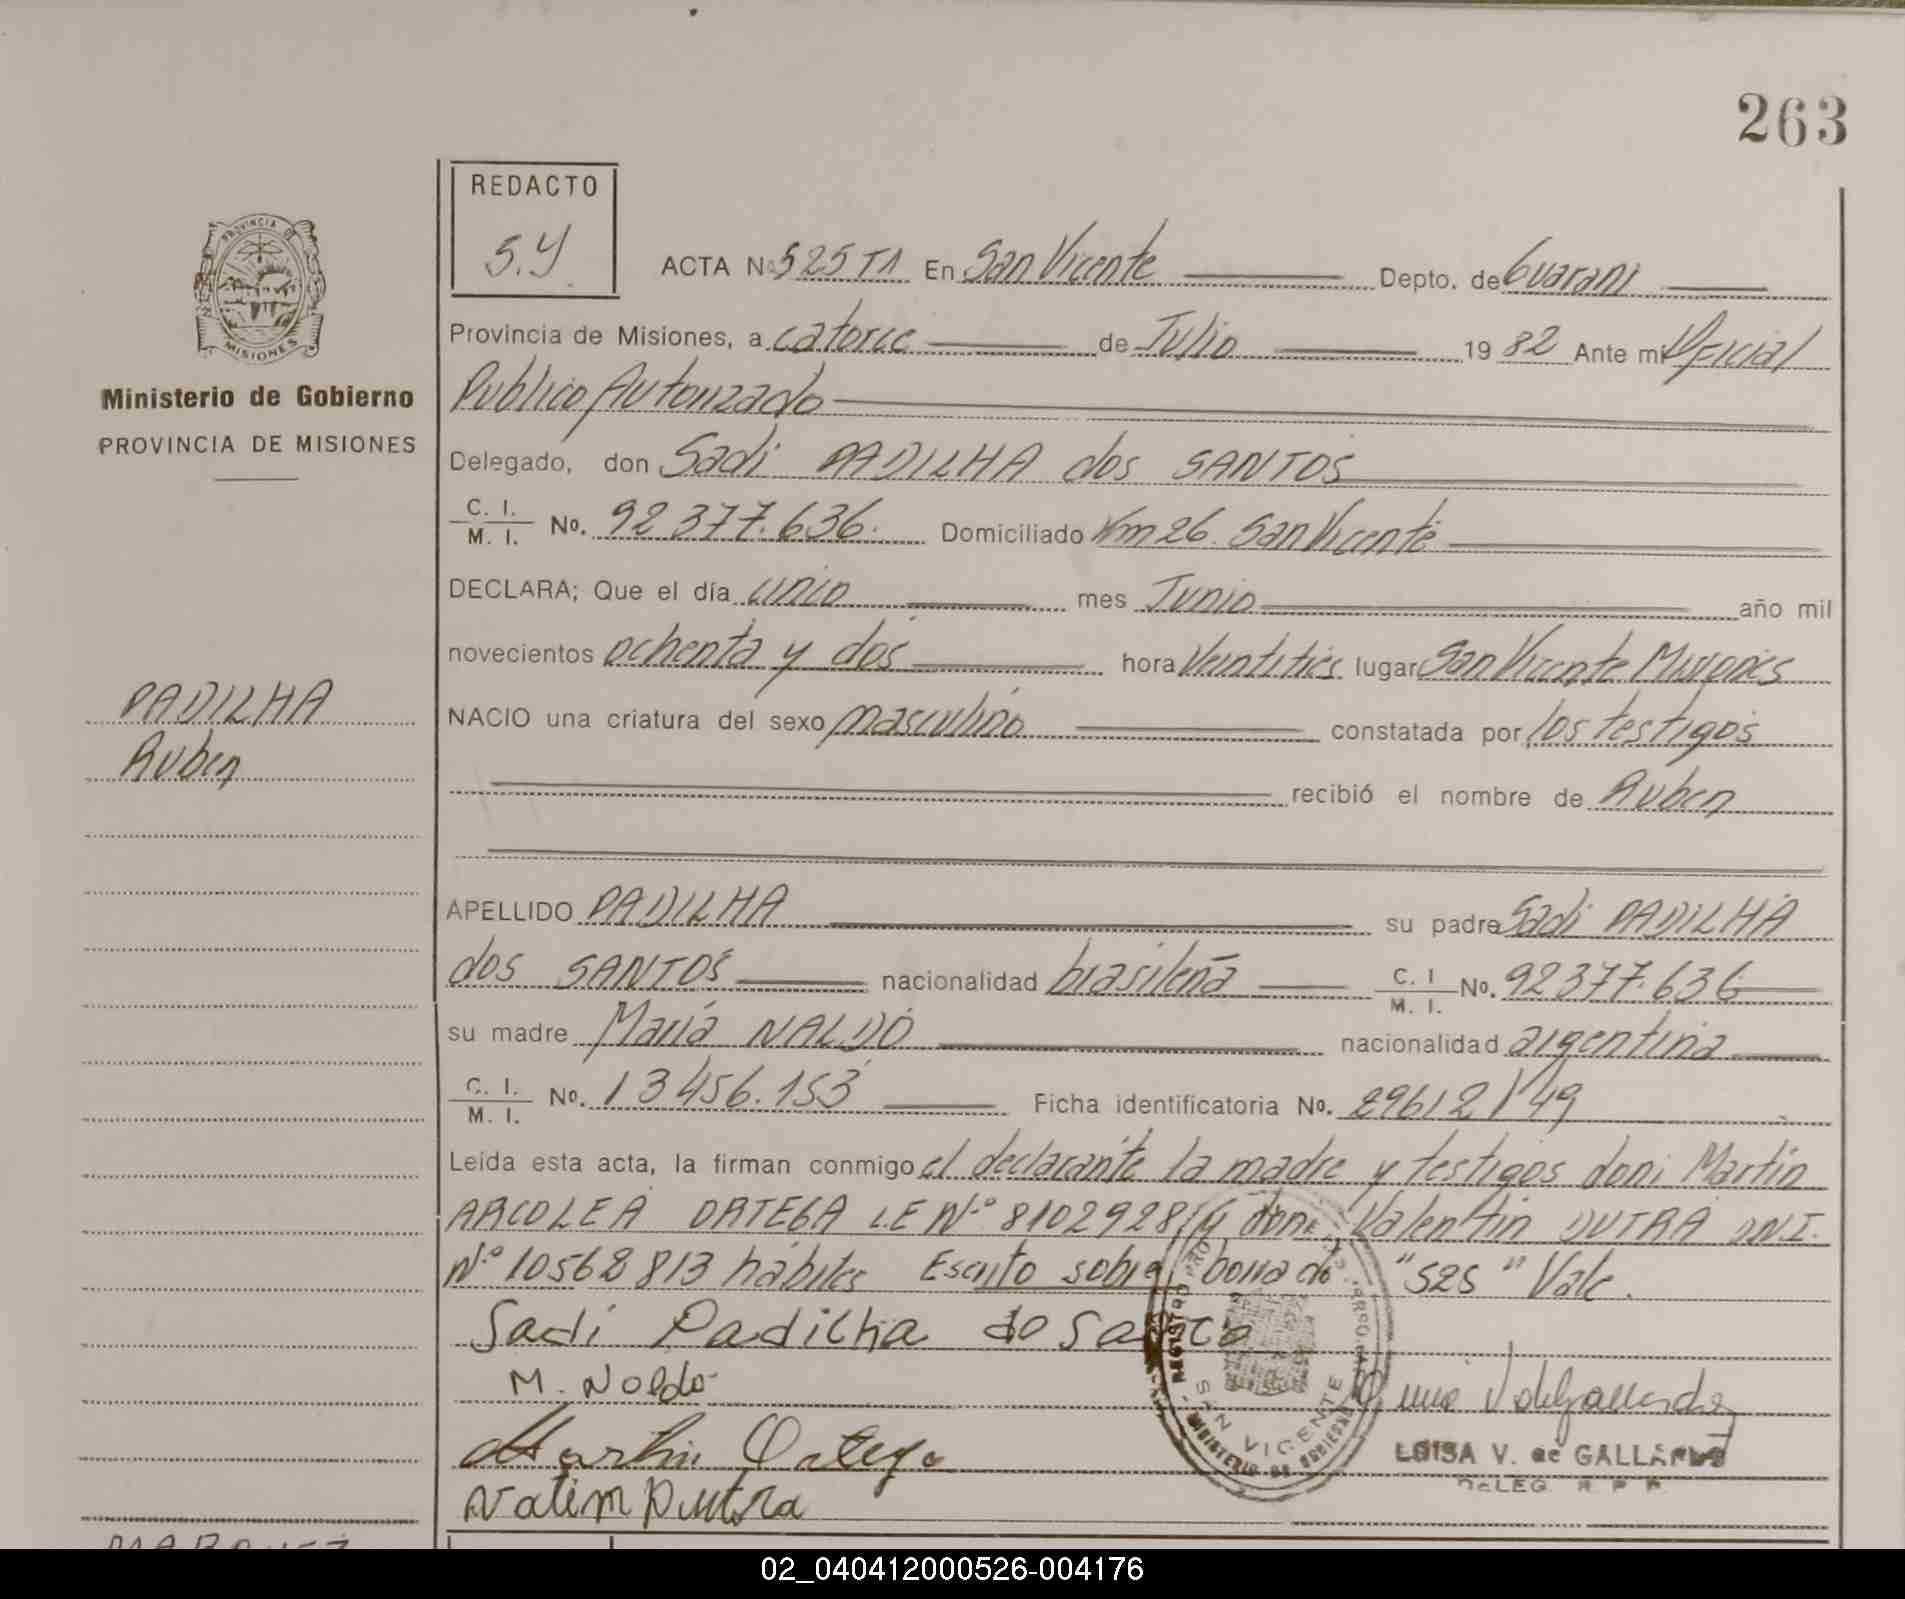 263
REDACTO
S.Y
ACTA Nº 525 T1 En San Vicente Depto. de Guarani
PROVINCIA DE
MISIONES
Provincia de Misiones, a catorce de Julio 1982 Ante mi Oficial
Ministerio de Gobierno
Publico Autorizado
PROVINCIA DE MISIONES
Delegado, don Sadi PADILHA dos SANTOS
C. I.
M. I. No. 92 377.636. Domiciliado Km 26. San Vicente
DECLARA; Que el día unico mes Junio año mil
novecientos ochenta y dos hora Veintitres lugar San Vicente Misiones
PADILHA
NACIO una criatura del sexo masculino constatada por los testigos
Ruben
recibió el nombre de Ruben
APELLIDO PADILHA su padre Sadi PADILHA
dos SANTOS nacionalidad brasileña C. I
M. I. No. 92377.636
su madre Maria NALDO nacionalidad argentina
C. I.
M. I. No. 13456.153 Ficha identificatoria No. 29612/49
Leída esta acta, la firman conmigo el declarante la madre y testigos don: Martin
ARCOLEA ORTEGA L.E Nº 8102928 y don: Valentin DUTRA DNI.
Nº 10568813 hábiles Escrito sobre borrado "525" Vale.
Sadi Padilha do
M. Noldo
Martin Ortega
Valtim Dutra
REGISTRO
SAN VICENTE
MINISTERIO DE GOBIERNO
LUISA V. de GALLARDO
DELEG. R P P
MARQUEZ
02_040412000526-004176